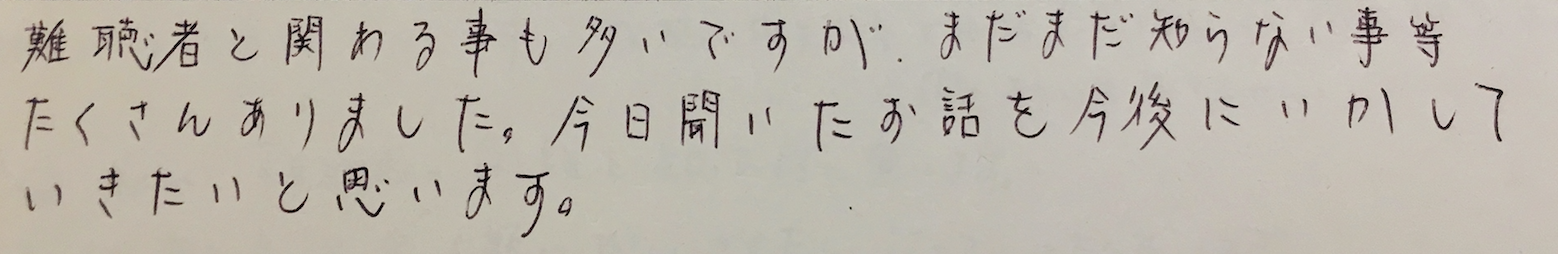 難聴者と関わる事も多いですが、まだまだ知らない事等
たくさんありました。今日聞いたお話を今後にいかして
いきたいと思います。